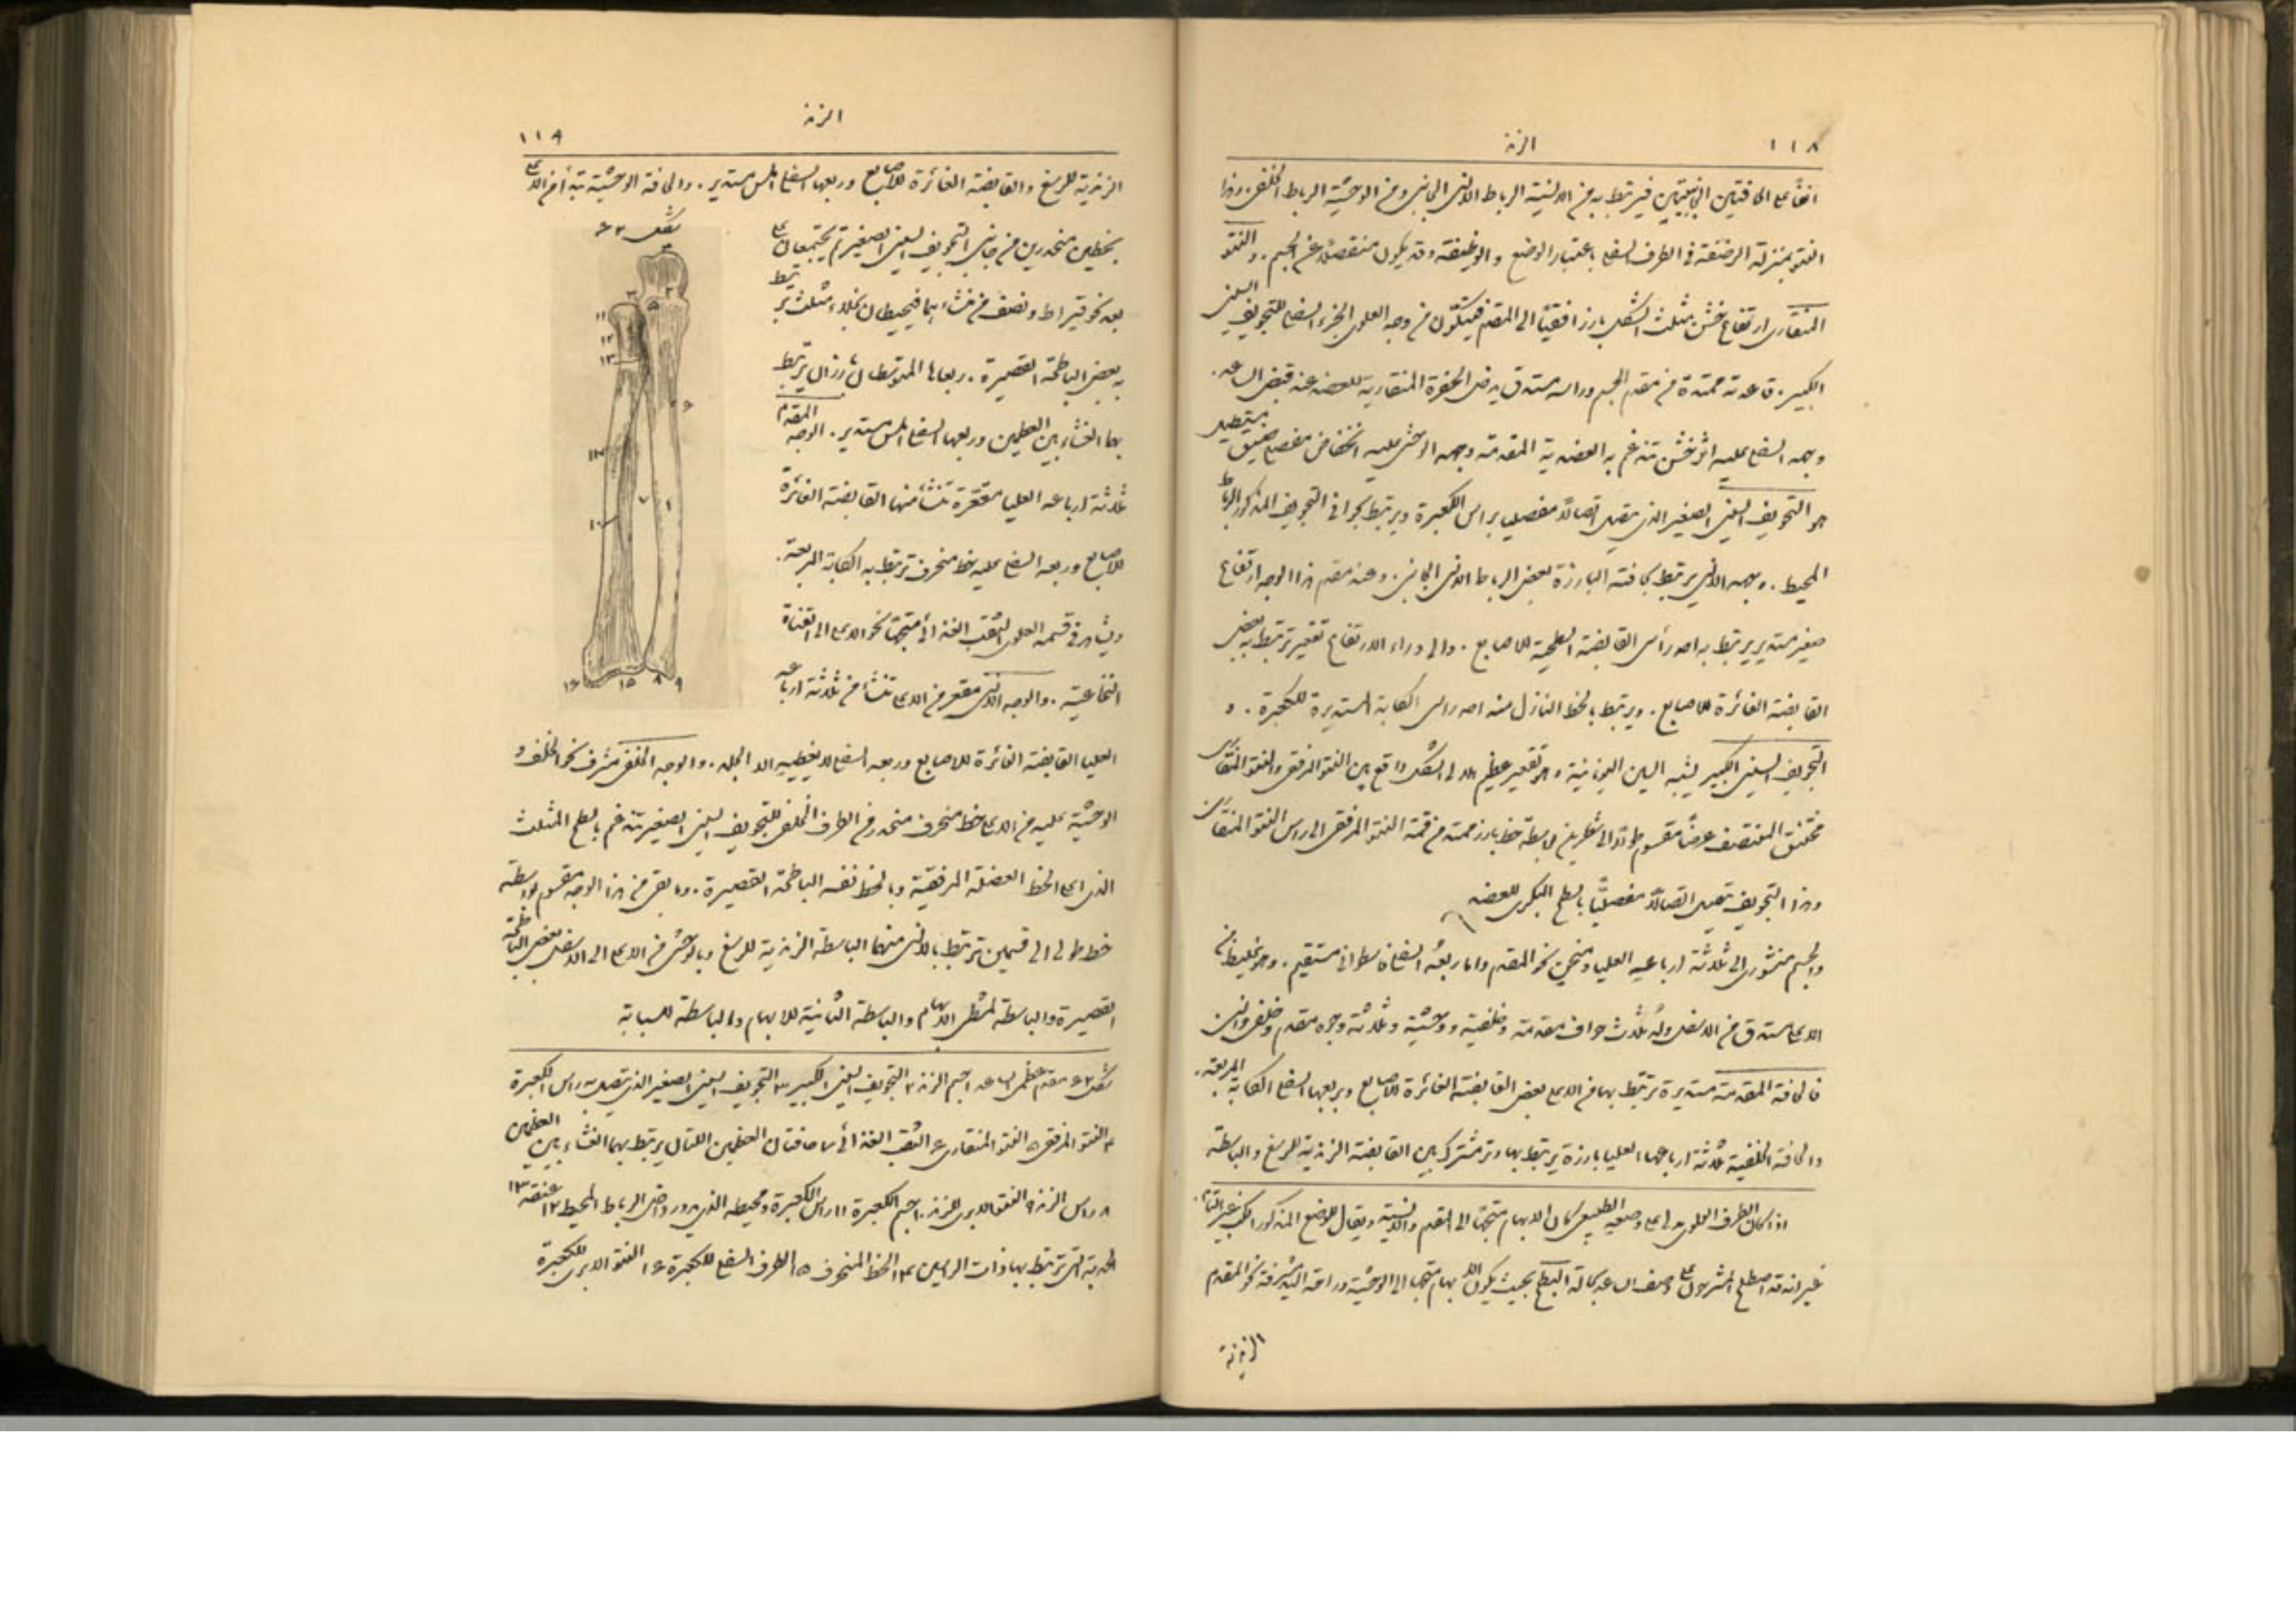 ١١٨
الزند
انفًا على الحافتين الجانبيتين فيرتبط به من الانسية الرباط الانسي الجانبي ومن الوحشية الرباط الخلفي. وهذا
النتو بمنزلة الرضفة في الطرف السفلي باعتبار الوضع والوظيفة وقد يكون منفصلاً عن الجسم. والنتو
المنقاري ارتفاع خشن مثلث الشكل بارز افقيًا الى المقدم فيتكون من وجهه العلوي الجزء السفلي للتجويف السيني
الكبير. قاعدته ممتدة من مقدم الجسم وراسه مستدق يدخل الحفرة المنقارية للعضد عند قبض الساعد.
وجهه السفلي عليه اثر خشن تندغم به العضدية المقدمة وجهه الوحشي عليه انخفاض مفصلي ضيق مستطيل
هو التجويف السيني الصغير الذي يتصل اتصالاً مفصليا براس الكعبرة ويرتبط بحوافي التجويف المذكور الرباط
المحيط. وجهه الانسي يرتبط بحافته البارزة بعض الرباط الانسي الجانبي. وعند مقدم هذا الوجه ارتفاع
صغير مستدير يرتبط به احد رأسي القابضة السطحية للاصابع. والى وراء الارتفاع تقعير ترتبط به بعض
القابضة الغائرة للاصابع. ويرتبط بالخط النازل منه احد راسي الكابة المستديرة للكعبرة. و
التجويف السيني الكبير يشبه السين اليونانية وهو تقعير عظيم هلالي الشكل واقع بين النتو المرفقي والنتو المنقاري
مختنق المنتصف عرضًا مقسوم طولاً الى شطرين بواسطة خط بارز ممتد من قمة النتو المرفقي الى راس النتو المنقاري
وهذا التجويف يتصل اتصالاً مفصليًّا بالسطح البكري للعضد
والجسم منشوري الى ثلاثة ارباعه العليا ومنحن نحو المقدم واما ربعه السفلي فاسطواني مستقيم. وهو غليظ من
الاعلى مستدق من الاسفل وله ثلاث حواف مقدمة وخلفية ووحشية وثلاثة وجوه مقدم وخلفي وانسي
فالحافة المقدمة مستديرة ترتبط بها من الاعلى بعض القابضة الغائرة للاصابع وبربعها السفلي الكابة المربعة.
والحافة الخلفية ثلاثة ارباعها العليا بارزة يرتبط بها وتر مشترك بين القابضة الزندية للرسغ والباسطة
اذا كان الطرف العلوي مدلى على وضعه الطبيعي كان الابهام متجها الى المقدم والانسية ويقال للوضع المذكور الكب غير التام.
غير انه قد اصطلح المشرحون على وصف الساعد بحالة البطح بحيث يكون الابهام متجها الى الوحشية وراحة اليد مشرفة نحو المقدم
الزندية
١١٩
الزند
الزندية للرسغ والقابضة الغائرة للاصابع وربعها السفلي املس مستدير. والحافة الوحشية تبتدأ من الاعلى
بخطين منحدرين من جانبي التجويف السيني الصغير ثم يجتمعان على
بعد نحو قيراط ونصف من منشاءهما فيحيطان بخلاء مثلث يرتبط
به بعض الباطحة القصيرة. ربعاها المتوسطان بارزان يرتبط
بهما الغشاء بين العظمين وربعها السفلي املس مستدير. الوجه المقدم
ثلاثة ارباعه العليا مقعرة تنشأ منها القابضة الغائرة
للاصابع وربعه السفلي عليه خط منحرف ترتبط به الكابة المربعة.
ويشاهد في قسمه العلوي الثقب الغذائي متجهًا نحو الاعلى الى القناة
النخاعية. والوجه الانسي مقعر من الاعلى تنشأ من ثلاثة ارباعه
العليا القابضة الغائرة للاصابع وربعه السفلي لا يغطيه الا الجلد. والوجه الخلفي مشرف نحو الخلف و
الوحشية عليه من الاعلى خط منحرف منحدر من الطرف الخلفي للتجويف السيني الصغير تندغم بالسطح المثلث
الذي اعلى الخط العضلة المرفقية وبالخط نفسه الباطحة القصيرة. وما بقي من هذا الوجه مقسوم بواسطة
خط طولي الى قسمين ترتبط بالانسي منهما الباسطة الزندية للرسغ وبالوحشي من الاعلى الى الاسفل بعض الباطحة
القصيرة والباسطة لمشط الابهام والباسطة الثانية للابهام والباسطة للسبابة
شكل ٤٣
٤ ٣ ٢ ٥ ١١ ١٢ ١٣ ٦ ١٤ ٧ ١ ١٠ ١٦ ١٥ ٨ ٩
شكل ٤٣ مقدم عظمي الساعد ١ جسم الزند ٢ التجويف السيني الكبير ٣ التجويف السيني الصغير الذي يتصل به راس الكعبرة
٤ النتو المرفقي ٥ النتو المنقاري ٦ الثقب الغذائي ٧ حافتان العظمين اللتان يرتبط بهما الغشاء بين العظمين
٨ راس الزند ٩ النتو الابري للزند ١٠ جسم الكعبرة ١١ راس الكعبرة ومحيطه الذي يدور داخل الرباط المحيط ١٢ عنقه ١٣
الحدبة التي ترتبط بها ذات الراسين ١٤ الخط المنحرف ١٥ الطرف السفلي للكعبرة ١٦ النتو الابري للكعبرة